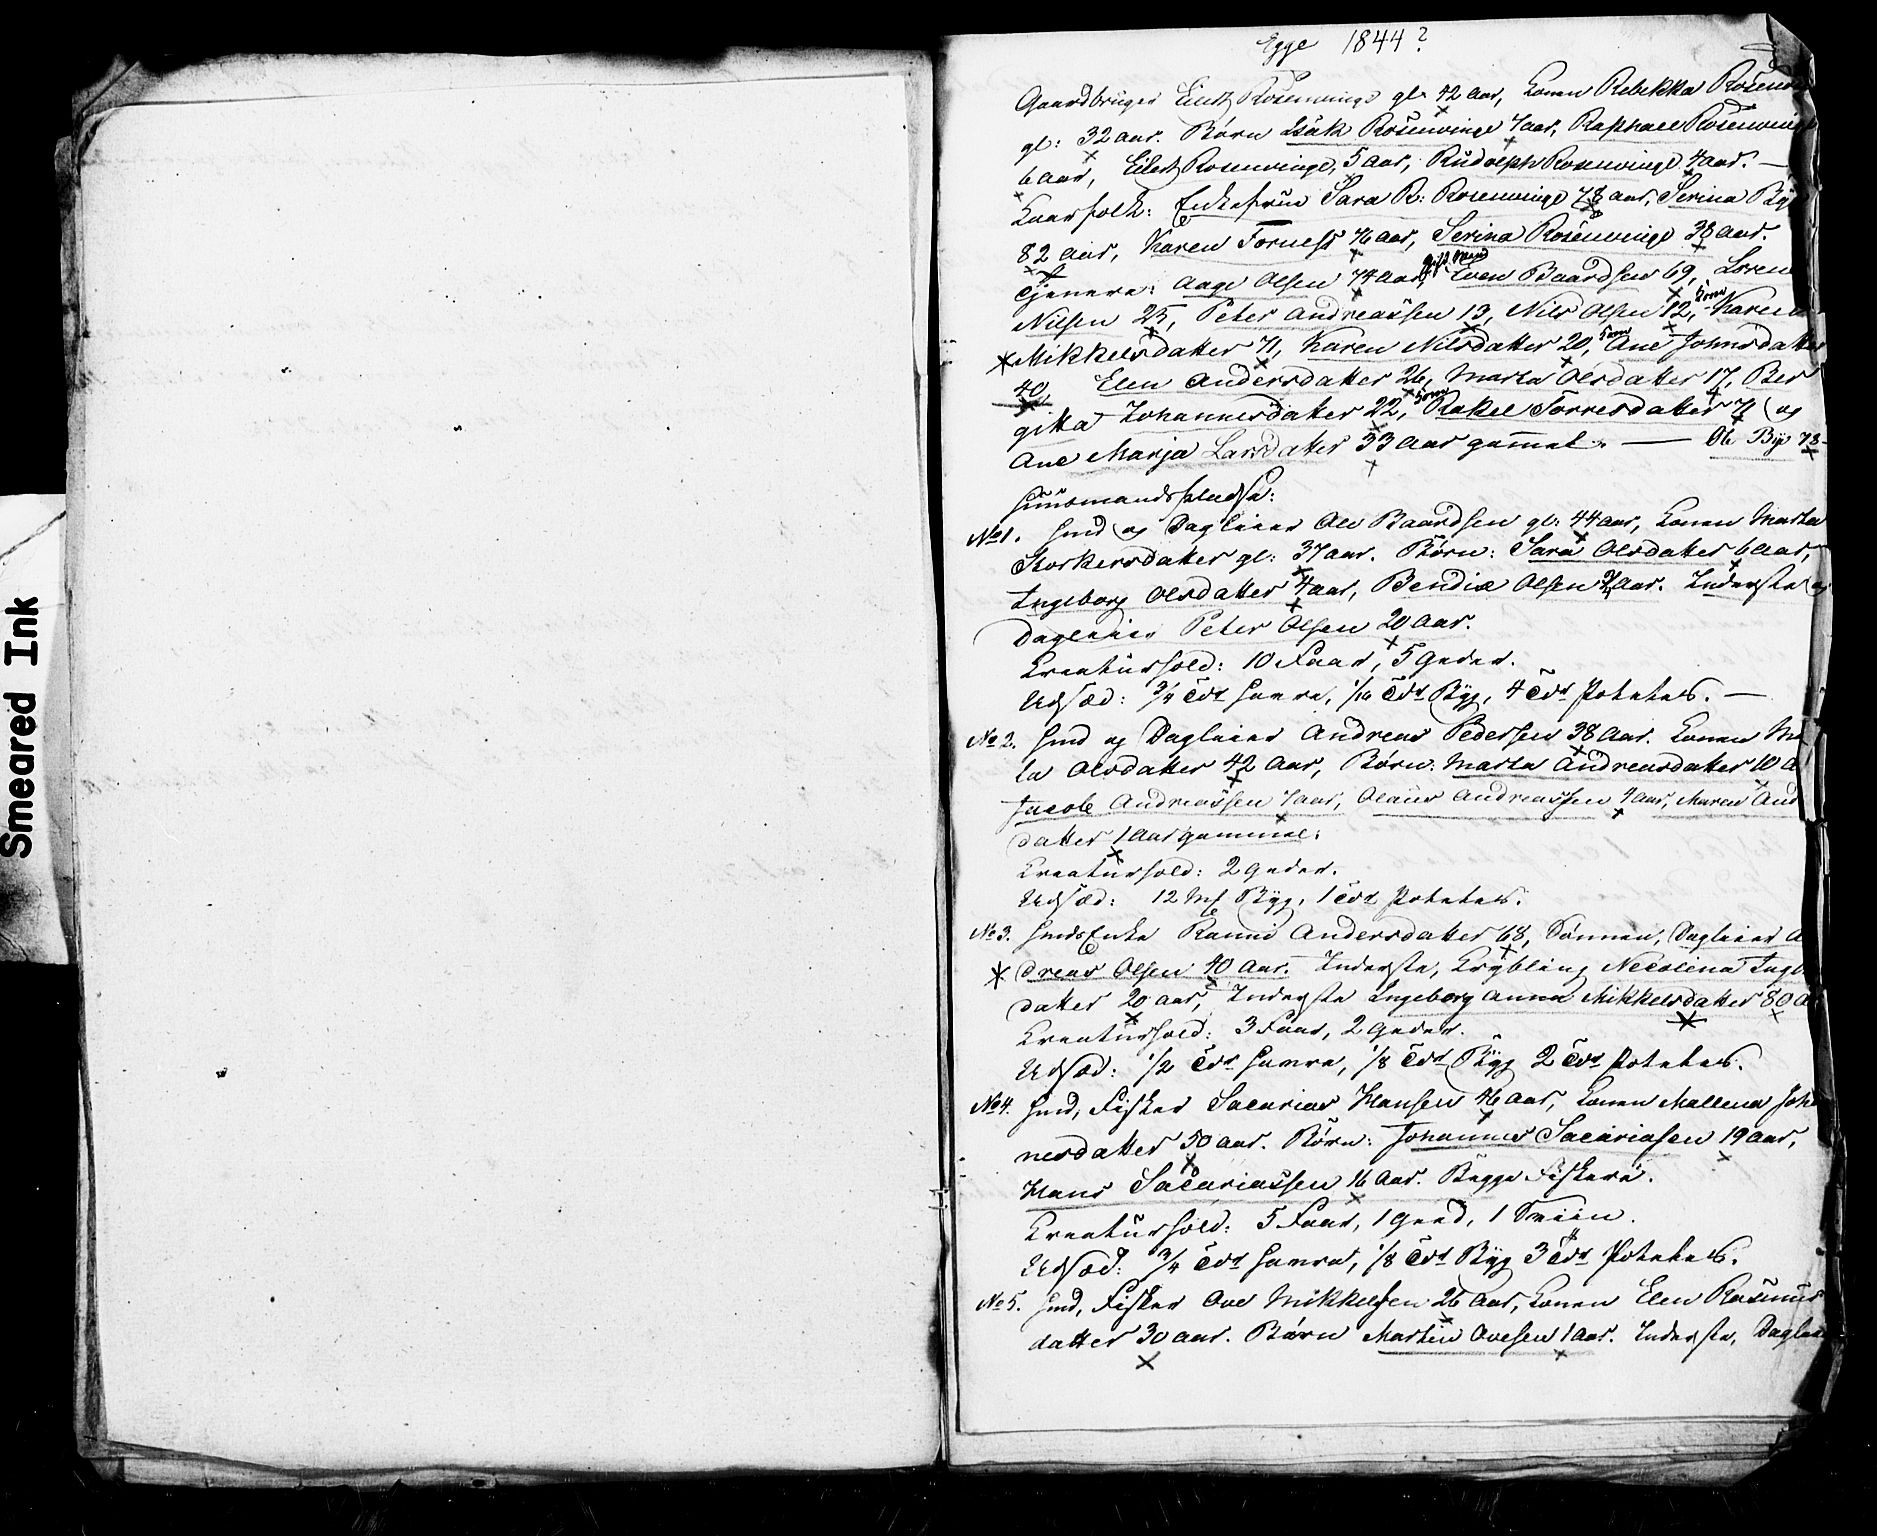 Smeared Ink
Egge 1844?
Gaardbruger Eilert Rosenvinge gl: 42 Aar, Konen Rebekka Rosenv
gl: 32 Aar. Børn Isak Rosenvinge 7 Aar, Raphael Rosenvinge
6 Aar, Eilert Rosenvinge, 5 Aar, Rudolph Rosenvinge 4 Aar. —
Kaarfolk: Enkefrue Sara R: Rosenvinge 78 Aar, Serina By
82 Aar, Karen Forness 76 Aar, Serina Rosenvinge 38 Aar.
Tjenere: Aage Olsen 74 Aar, gift Mand Even Baardsen 69, Loren
Nilsen 25, Peter Andreassen 13, Nils Olsen 12, Karen
Mikkelsdatter 71, Karen Nilsdatter 20, Ane Johnsdatter
40, Elen Andersdatter 26, Marta Olsdatter 17, Ber
gitta Johannesdatter 22, Rakel Torresdatter 71 og
Ane Marja Larsdatter 33 Aar gammel. — Ole Bye 73
Huusmandspladse:
No 1. Hmd og Dagleier Ole Baardsen gl: 44 Aar, Konen Marta
Storkersdatter gl: 37 Aar. Børn: Sara Olsdatter 6 Aar,
Ingeborg Olsdatter 4 Aar, Bendix Olsen 2 Aar. Inderste og
Dagleier Peter Olsen 20 Aar.
Kreaturhold: 10 Faar, 5 Geder.
Udsæd: 3/4 Tdr Havre, 1/16 Tdr Byg, 4 Tdr Poteter. —
No 2. Hmd og Dagleier Andreas Pedersen 38 Aar. Konen Ma
la Olsdatter 42 Aar, Børn: Marta Andreasdatter 10 A
Jacob Andreassen 7 Aar, Olaus Andreassen 4 Aar, Maren And
datter 1 Aar gammel.
Kreaturhold: 2 Geder.
Udsæd: 12 Mk Byg, 1 Tdr Poteter.
No 3. Hmds Enke Ranni Andersdatter 68, Sønnen, Dagleier A
dreas Olsen 40 Aar. Inderste, Krybling Necolina Inge
datter 20 Aar, Inderste Ingeborg Anna Mikkelsdatter 80 A
Kreaturhold: 3 Faar, 2 Geder.
Udsæd: 1/2 Tdr Havre, 1/8 Tdr Byg 2 Tdr Poteter.
No 4. Hmd, Fisker Sacarias Hansen 46 Aar, Konen Mallena Joha
nesdatter 50 Aar. Børn: Johannes Sacariasen 19 Aar,
Hans Sacariassen 16 Aar. Begge Fiskere.
Kreaturhold: 5 Faar, 1 Geed, 1 Sviin.
Udsæd: 3/4 Tdr Havre, 1/8 Tdr Byg 3 Tdr Poteter.
No 5. Hmd, Fisker Ove Mikkelsen 26 Aar, Konen Elen Rasmus
datter 30 Aar. Børn Martin Ovesen 1 Aar. Inderste, Daglei